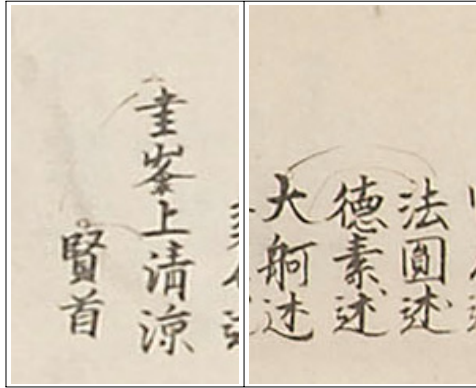 法圓述
德素述
大舸述
圭峯上清涼
賢首